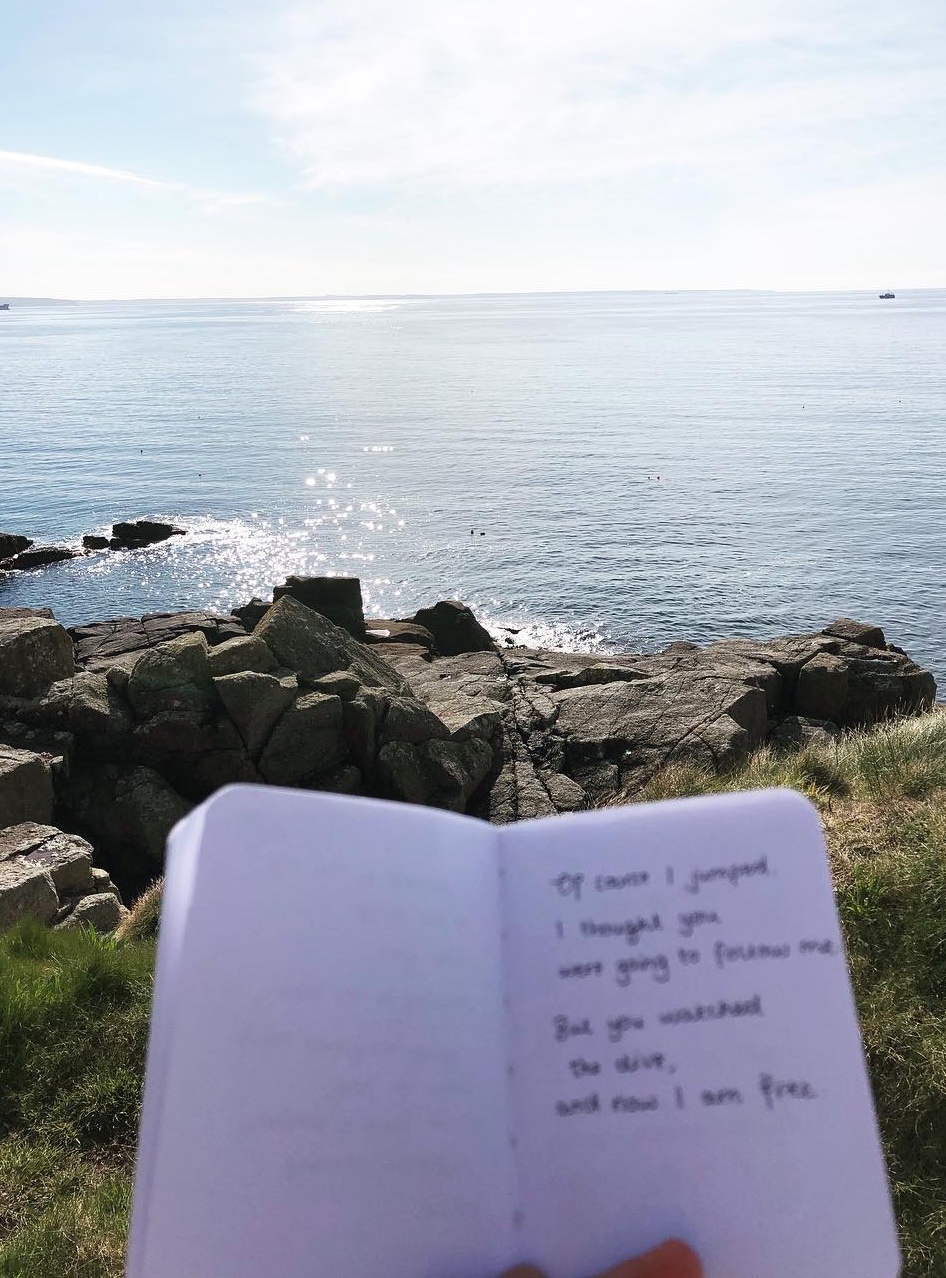 Of cause I jumped.
I thought you
were going to follow me
But you watched
the dive,
and now I am free